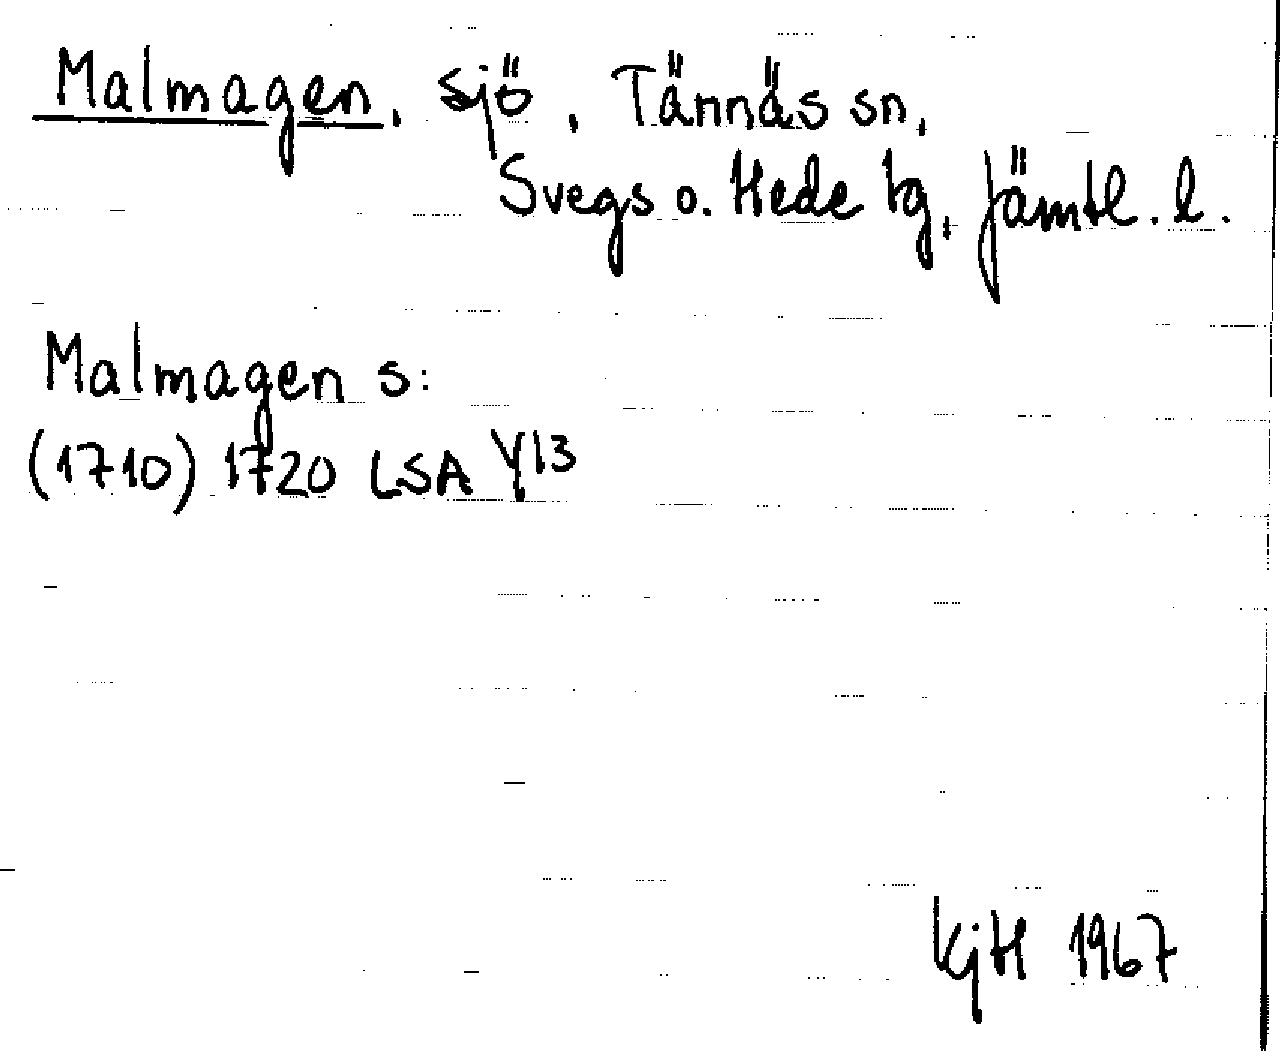 Malmagen, sjö, Tännäs sn,
Svegs o. Hede tg, Jämtl. l.
Malmagen s:
(1710) 1720 LSA Y13
KjH 1967